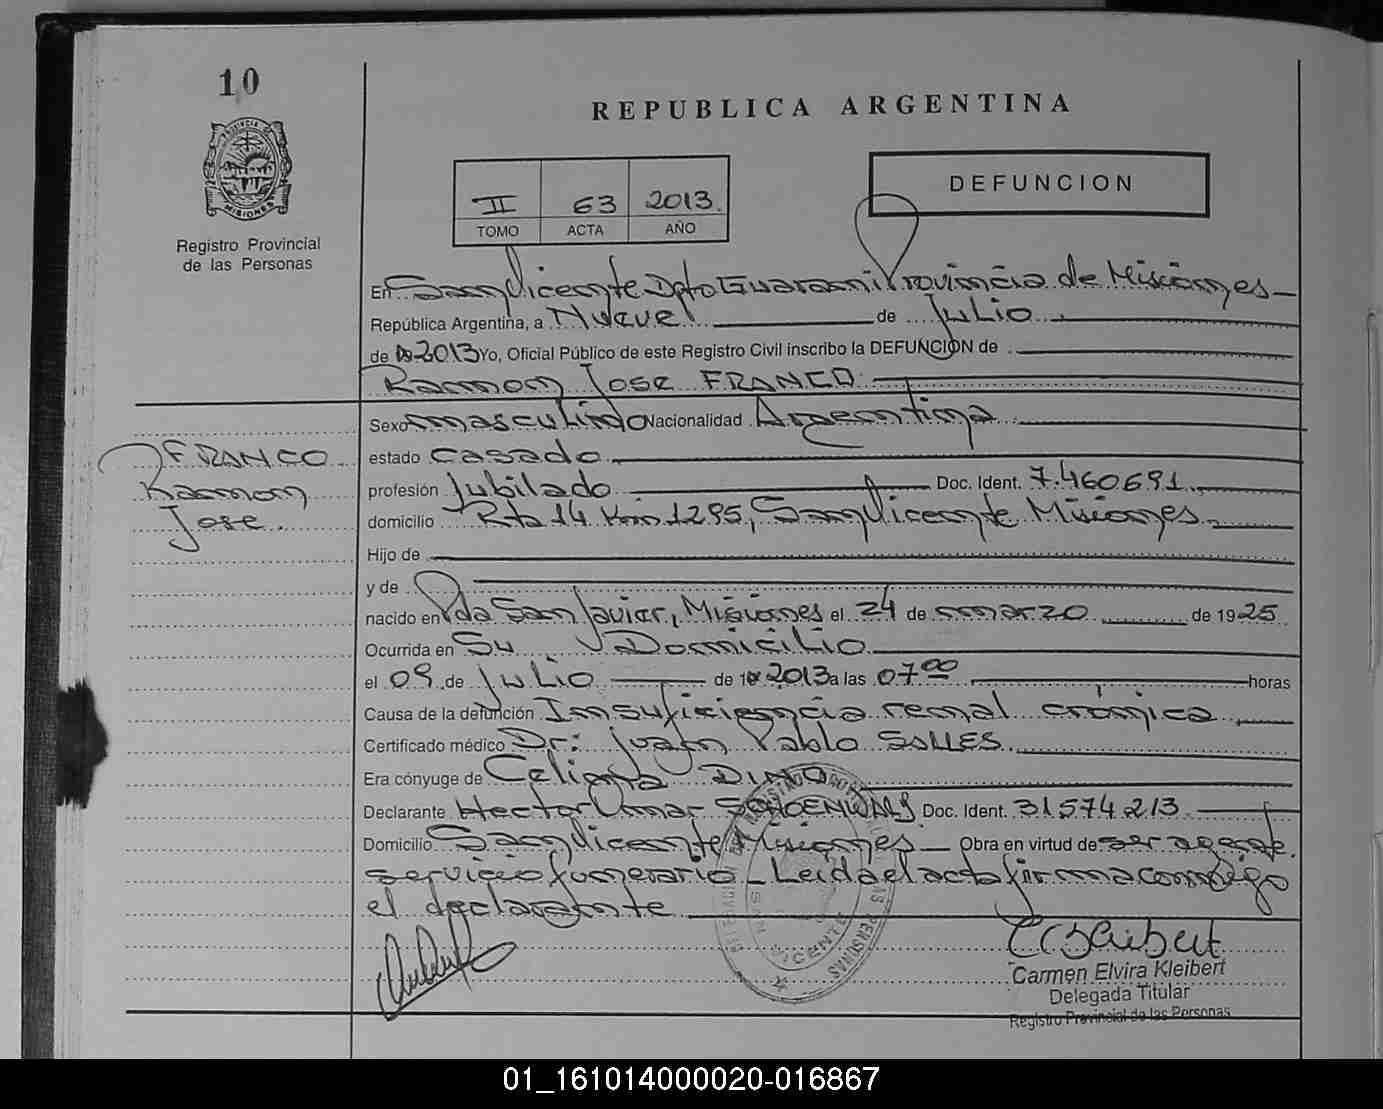 10
REPUBLICA ARGENTINA
PROVINCIA DE
MISIONES
Registro Provincial
de las Personas
II 63 2013.
TOMO ACTA AÑO
DEFUNCION
En San Vicente Dpto Guarani Provincia de Misiones
República Argentina, a Nueve de Julio
de 2013 Yo, Oficial Público de este Registro Civil inscribo la DEFUNCION de
Ramon Jose FRANCO
FRANCO
Ramon
Jose.
Sexo masculino Nacionalidad Argentina
estado casado
profesión Jubilado Doc. Ident. 7.460691
domicilio Rta 14 Km 1295, San Vicente Misiones
Hijo de
y de
nacido en Pda San Javier, Misiones el 24 de marzo de 1925
Ocurrida en Su Domicilio
el 09 de Julio de 2013 a las 07 00 horas
Causa de la defunción Insuficiencia renal crónica
Certificado médico Dr: Juan Pablo SALLES
Era cónyuge de Celina DINO
Declarante Hector Omar Doc. Ident. 31574213
Domicilio San Vicente Misiones Obra en virtud de ser agente
servicio funerario Leida el acta firma conmigo
el declarante
VICENTE
Carmen Elvira Kleibert
Delegada Titular
Registro Provincial de las Personas
01_161014000020-016867